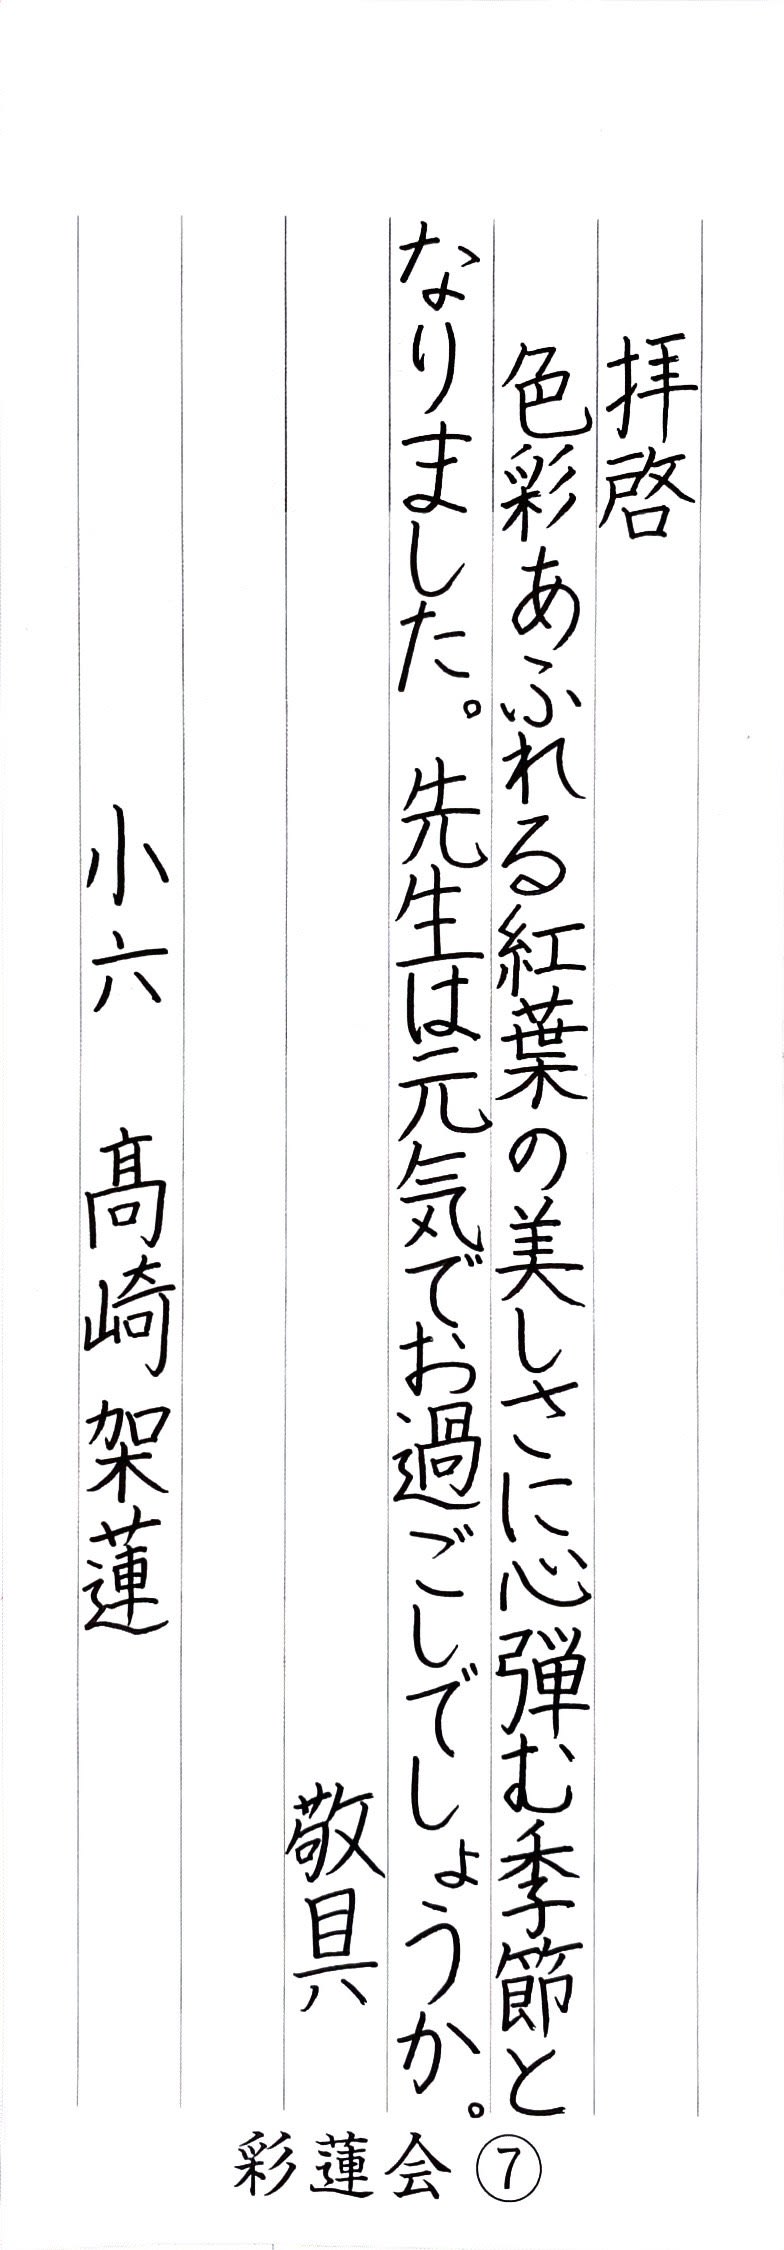 拝啓
色彩あふれる紅葉の美しさに心弾む季節と
なりました。先生は元気でお過ごしでしょうか。
敬具
小六 髙崎架蓮
彩蓮会⑦